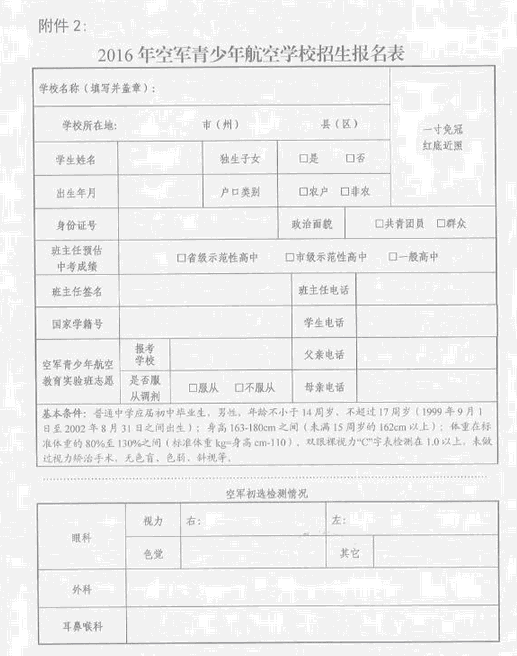 附件2：
2016年空军青少年航空学校招生报名表
学校名称（填写并盖章）：
学校所在地: 市（州） 县（区）
一寸免冠
红底近照
学生姓名 独生子女 □是 □否
出生年月 户口类别 □农户 □非农
身份证号 政治面貌 □共青团员 □群众
班主任预估
中考成绩
□省级示范性高中 □市级示范性高中 □一般高中
班主任签名 班主任电话
国家学籍号 学生电话
空军青少年航空
教育实验班志愿
报考
学校
父亲电话
是否服
从调剂
□服从 □不服从 母亲电话
基本条件：普通中学应届初中毕业生，男性，年龄不小于14周岁、不超过17周岁（1999年9月1
日至2002年8月31日之间出生）；身高163-180cm之间（未满15周岁的162cm以上）；体重在标
准体重的80%至130%之间（标准体重kg=身高cm-110）。双眼裸视力“C”字表检测在1.0以上，未做
过视力矫治手术，无色盲、色弱、斜视等。
空军初选检测情况
眼科 视力 右: 左:
色觉 其它
外科
耳鼻喉科